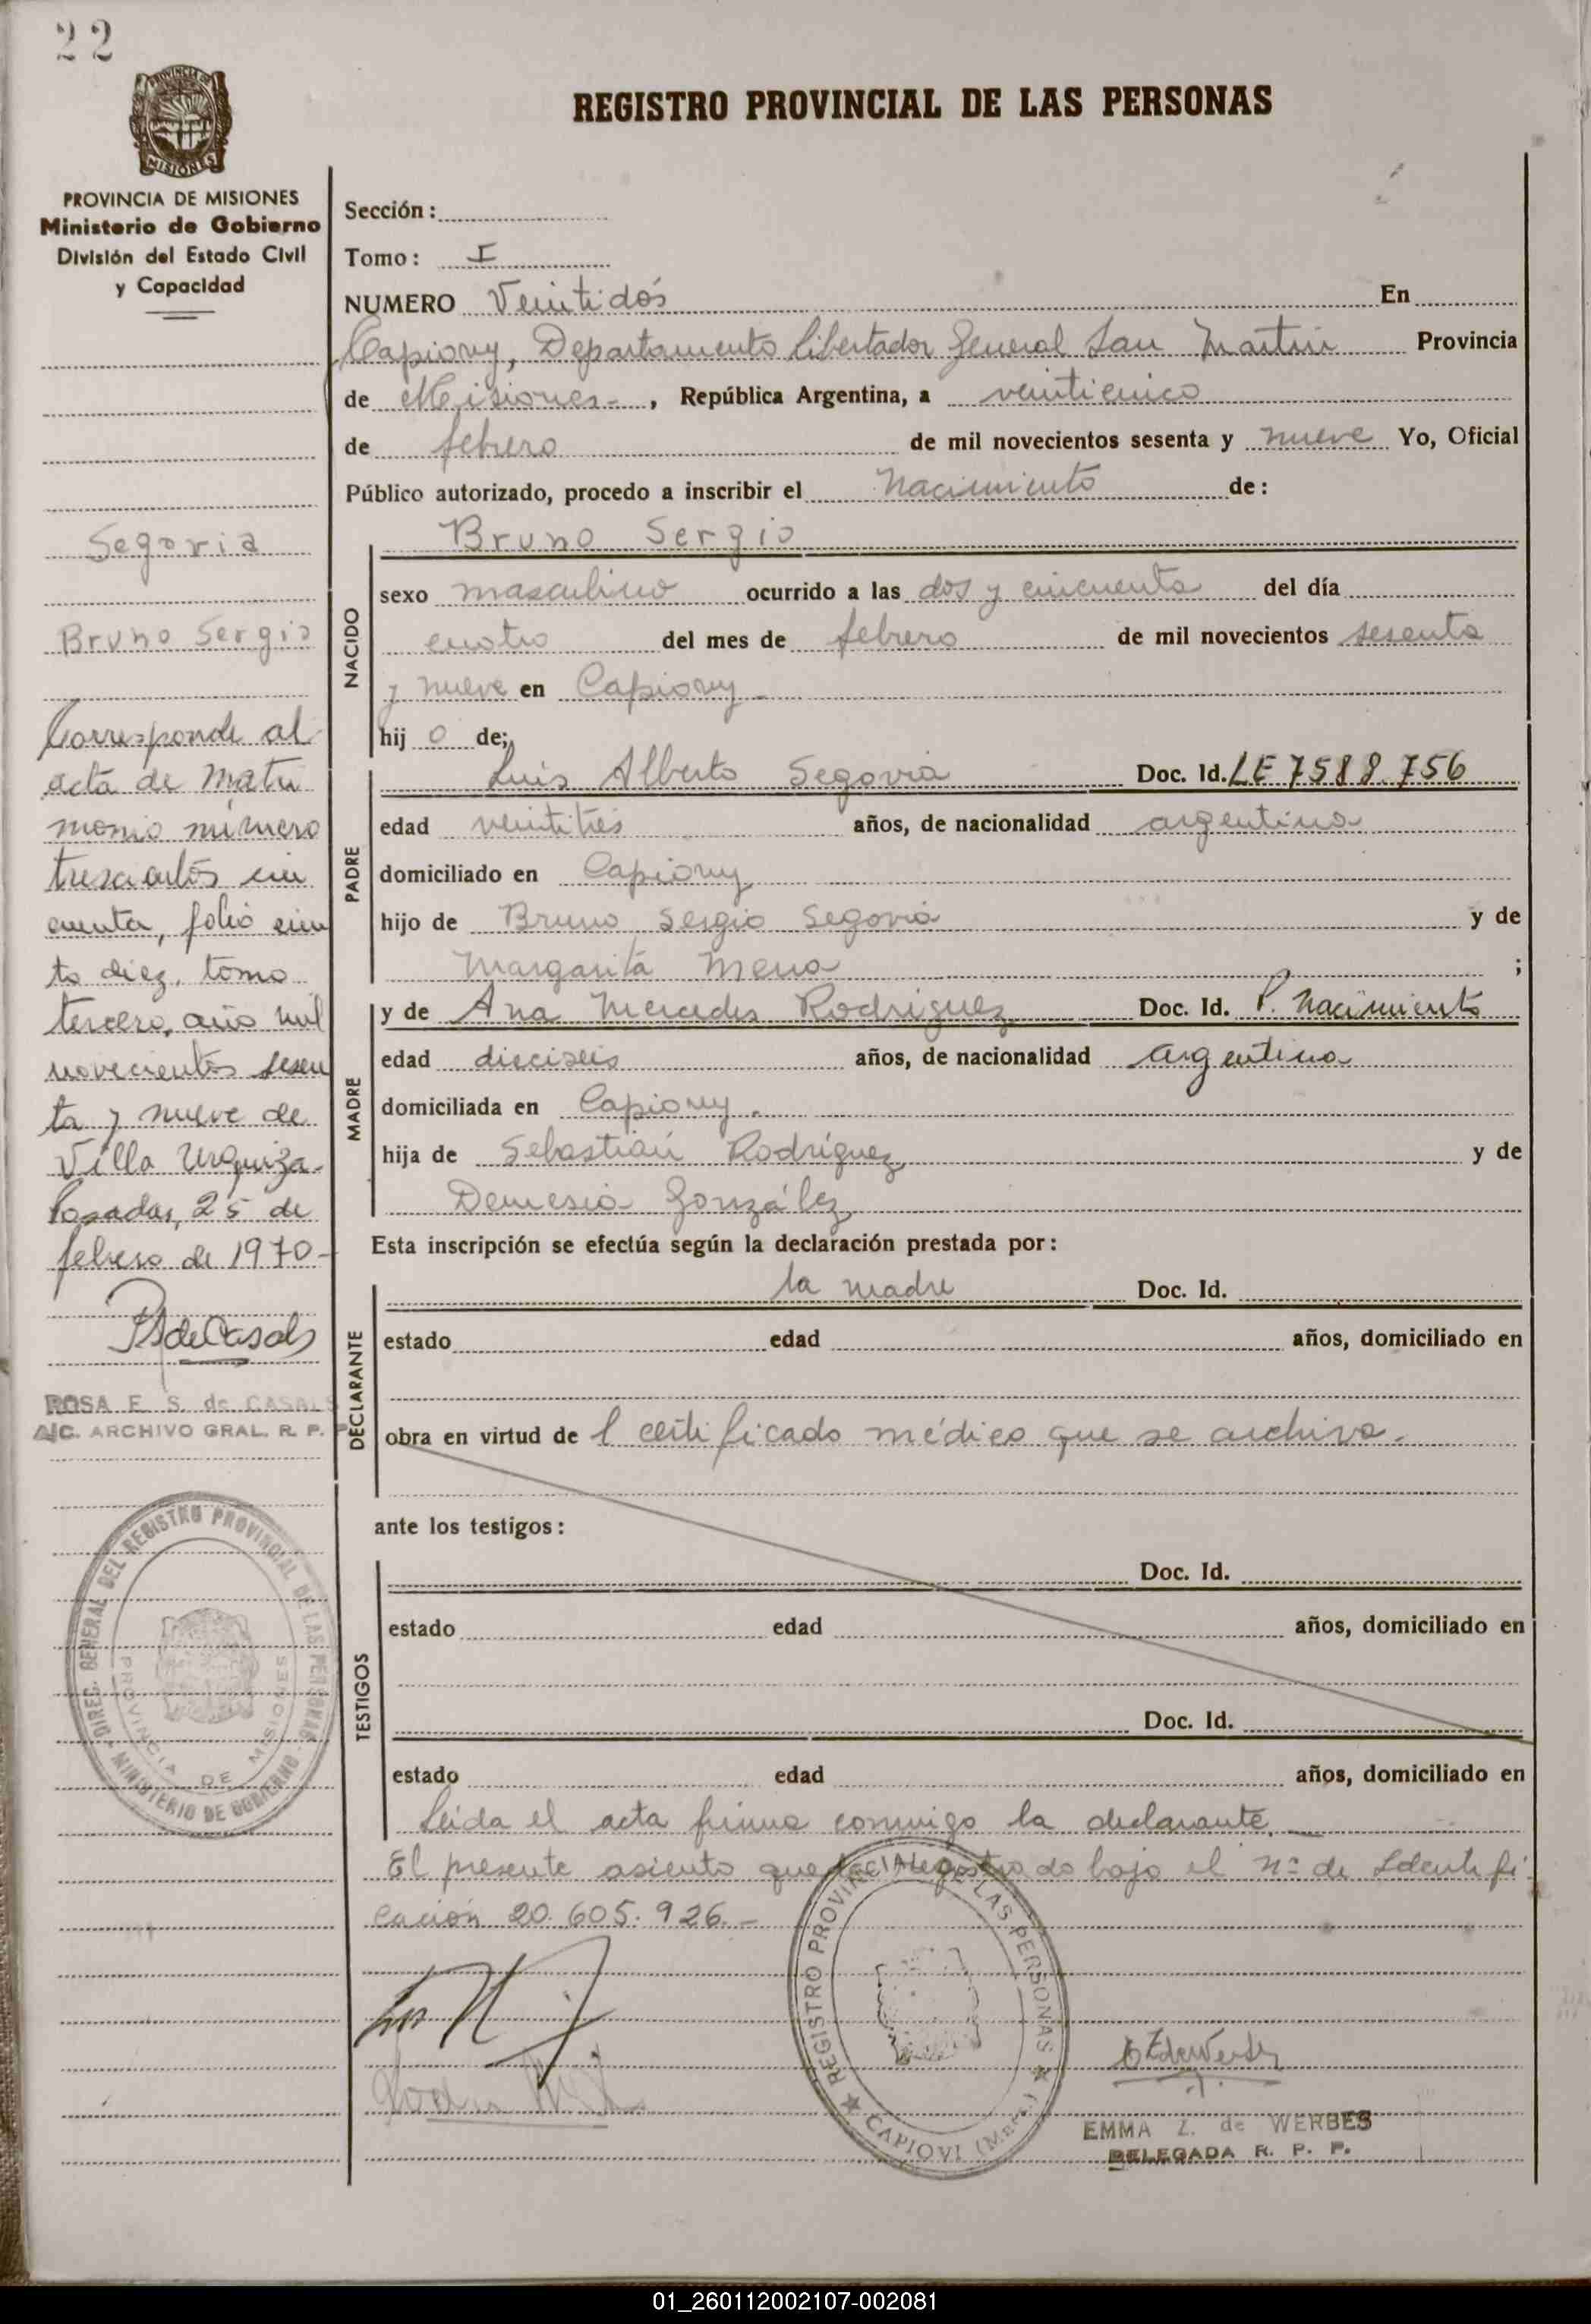 22
PROVINCIA DE
MISIONES
PROVINCIA DE MISIONES
Ministerio de Gobierno
División del Estado Civil
y Capacidad
Segovia
Bruno Sergio
Corresponde al
acta de Matri
monio número
trescientos cin
cuenta, folio cien
to diez, tomo
tercero, año mil
novecientos sesen
ta y nueve de
Villa Urquiza.
Posadas, 25 de
febrero de 1970-
RSdeCasals
ROSA E. S. de CASALS
A/C. ARCHIVO GRAL. R. P. P.
DIREC. GENERAL DEL REGISTRO PROVINCIAL DE LAS PERSONAS
MINISTERIO DE GOBIERNO
PROVINCIA DE MISIONES
REGISTRO PROVINCIAL DE LAS PERSONAS
Sección:
Tomo: I
NUMERO Veintidós En
Capiovy, Departamento Libertador General San Martín Provincia
de Misiones-, República Argentina, a veinticinco
de febrero de mil novecientos sesenta y nueve Yo, Oficial
Público autorizado, procedo a inscribir el Nacimiento de:
NACIDO
Bruno Sergio
sexo masculino ocurrido a las dos y cincuenta del día
cuatro del mes de febrero de mil novecientos sesenta
y nueve en Capiovy-
hij o de;
PADRE
Luis Alberto Segovia Doc. Id. LE 7588.756
edad veintitrés años, de nacionalidad argentina
domiciliado en Capiovy
hijo de Bruno Sergio Segovia y de
Margarita Mena ;
MADRE
y de Ana Mercedes Rodríguez Doc. Id. P. Nacimiento
edad dieciseis años, de nacionalidad argentina
domiciliada en Capiovy.
hija de Sebastián Rodríguez y de
Demesia González
Esta inscripción se efectúa según la declaración prestada por:
DECLARANTE
la madre Doc. Id.
estado edad años, domiciliado en
obra en virtud de l certificado médico que se archiva.
ante los testigos:
TESTIGOS
Doc. Id.
estado edad años, domiciliado en
Doc. Id.
estado edad años, domiciliado en
Leída el acta firma conmigo la declarante.
El presente asiento queda registrado bajo el nº de Identifi
cación 20.605.926.-
REGISTRO PROVINCIAL DE LAS PERSONAS
CAPIOVI (Mnes.)
EMMA Z. de WERBES
DELEGADA R. P. P.
01_260112002107-002081